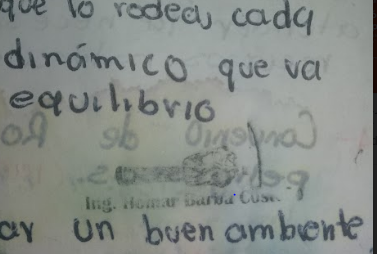 que lo rodea, cada
dinámico que va
equilibrio
Ing. Homar Barba
ar un buen ambiente